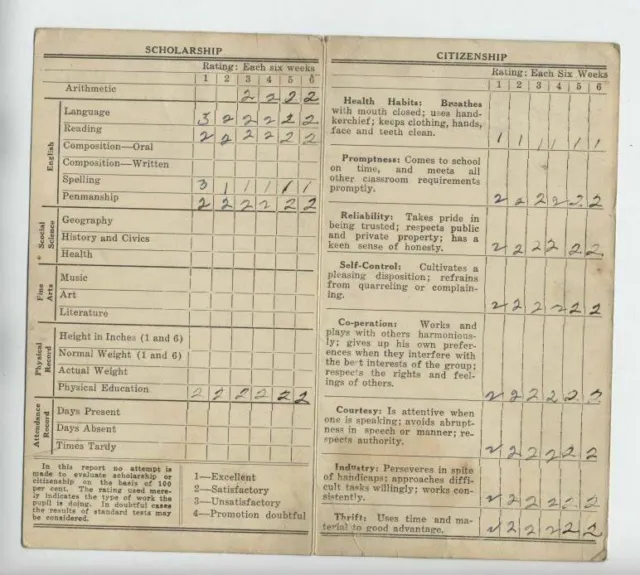 SCHOLARSHIP
Rating: Each six weeks
1 2 3 4 5 6
Arithmetic 2 2 2 2
English
Language 3 2 2 2 2 2
Reading 2 2 2 2 2 2
Composition—Oral
Composition—Written
Spelling 3 1 1 1 1 1
Penmanship 2 2 2 2 2 2
* Scocial Science
Geography
History and Civics
Health
Fine Arts
Music
Art
Literature
Physical Record
Height in Inches (1 and 6)
Normal Weight (1 and 6)
Actual Weight
Physical Education 2 2 2 2 2 2
Attendance Record
Days Present
Days Absent
Times Tardy
In this report no attempt is
made to evaluate scholarship or
citizenship on the basis of 100
per cent. The rating used mere-
ly indicates the type of work the
pupil is doing. In doubtful cases
the results of standard tests may
be considered.
1—Excellent
2—Satisfactory
3—Unsatisfactory
4—Promotion doubtful
CITIZENSHIP
Rating: Each Six Weeks
1 2 3 4 5 6
Health Habits: Breathes
with mouth closed; uses hand-
kerchief; keeps clothing, hands,
face and teeth clean. 1 1 1 1 1 1
Promptness: Comes to school
on time, and meets all
other classroom requirements
promptly. 2 2 2 2 2 2
Reliability: Takes pride in
being trusted; respects public
and private property; has a
keen sense of honesty. 2 2 2 2 2 2
Self-Control: Cultivates a
pleasing disposition; refrains
from quarreling or complain-
ing. 2 2 2 2 2 2
Co-operation: Works and
plays with others harmonious-
ly; gives up his own prefer-
ences when they interfere with
the best interests of the group;
respects the rights and feel-
ings of others. 2 2 2 2 2 2
Courtesy: Is attentive when
one is speaking; avoids abrupt-
ness in speech or manner; re-
spects authority. 2 2 2 2 2 2
Industry: Perseveres in spite
of handicaps; approaches diffi-
cult tasks willingly; works con-
sistently. 2 2 2 2 2 2
Thrift: Uses time and ma-
terial to good advantage. 2 2 2 2 2 2